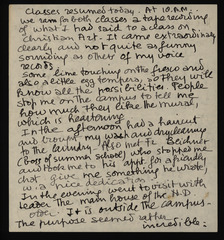 Classes resumed today. At 10 A.M.
we ran for both classes a tape recording
of what I had said to a class on
Christian Art. It came extraordinary
clearly and not quite as funny
sounding as others of my voice
records
some slime touching on the fresco and
also a little egg tempera, so they will
know all the possibilities. People
stop me on the campus to tell me
how much they like the mural,
which is heartening
In the afternoon had a haircut
and brought my wash and drycleaning
to the laundry. Also met Fr.
(Boss of summer school) who stopped me
and took me to his apt for a friendly
chat. Give me something he wrote,
w. a nice dedication.
In the evening went to visit with
the main house of the N.D.
It is outside the campus.
The purpose seemed rather
incredible: